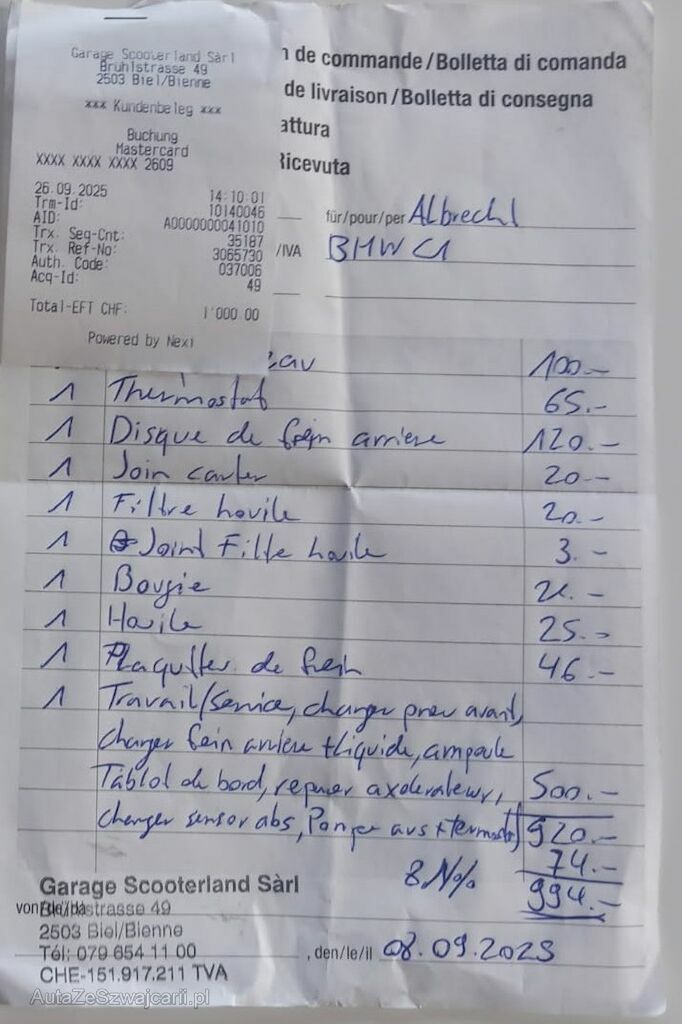 Garage Scooterland Sàrl
Brühlstrasse 49
2503 Biel/Bienne
xxx Kundenbeleg xxx
Buchung
Mastercard
XXXX XXXX XXXX 2609
26.09.2025 14:10:01
Trm-Id: 10140046
AID: A0000000041010
Trx. Seq-Cnt: 35187
Trx. Ref-No: 3065730
Auth. Code: 037006
Acq-Id: 49
Total-EFT CHF: 1'000.00
Powered by Nexi
n de commande/Bolletta di comanda
de livraison/Bolletta di consegna
attura
Ricevuta
für/pour/per Albrecht
/IVA BMW C1
eau 100.-
1 Thermostat 65.-
1 Disque de frein arriere 120.-
1 Join carter 20.-
1 Filtre houile 20.-
1 Joint Filte houile 3.-
1 Bougie
1 Houile 25.-
1 Plaquttes de frein 46.-
1 Travail/Service, changer pneu avant,
changer frein arriere + liquide, ampoule
Tablot de bord, reparer axelerateur, 500.-
changer sensor abs, 920.-
74.-
994.-
Garage Scooterland Sàrl
von/de/da Brühlstrasse 49
2503 Biel/Bienne
Tél: 079 654 11 00 , den/le/il 08.09.2025
CHE-151.917.211 TVA
AutaZeSzwajcarii.pl